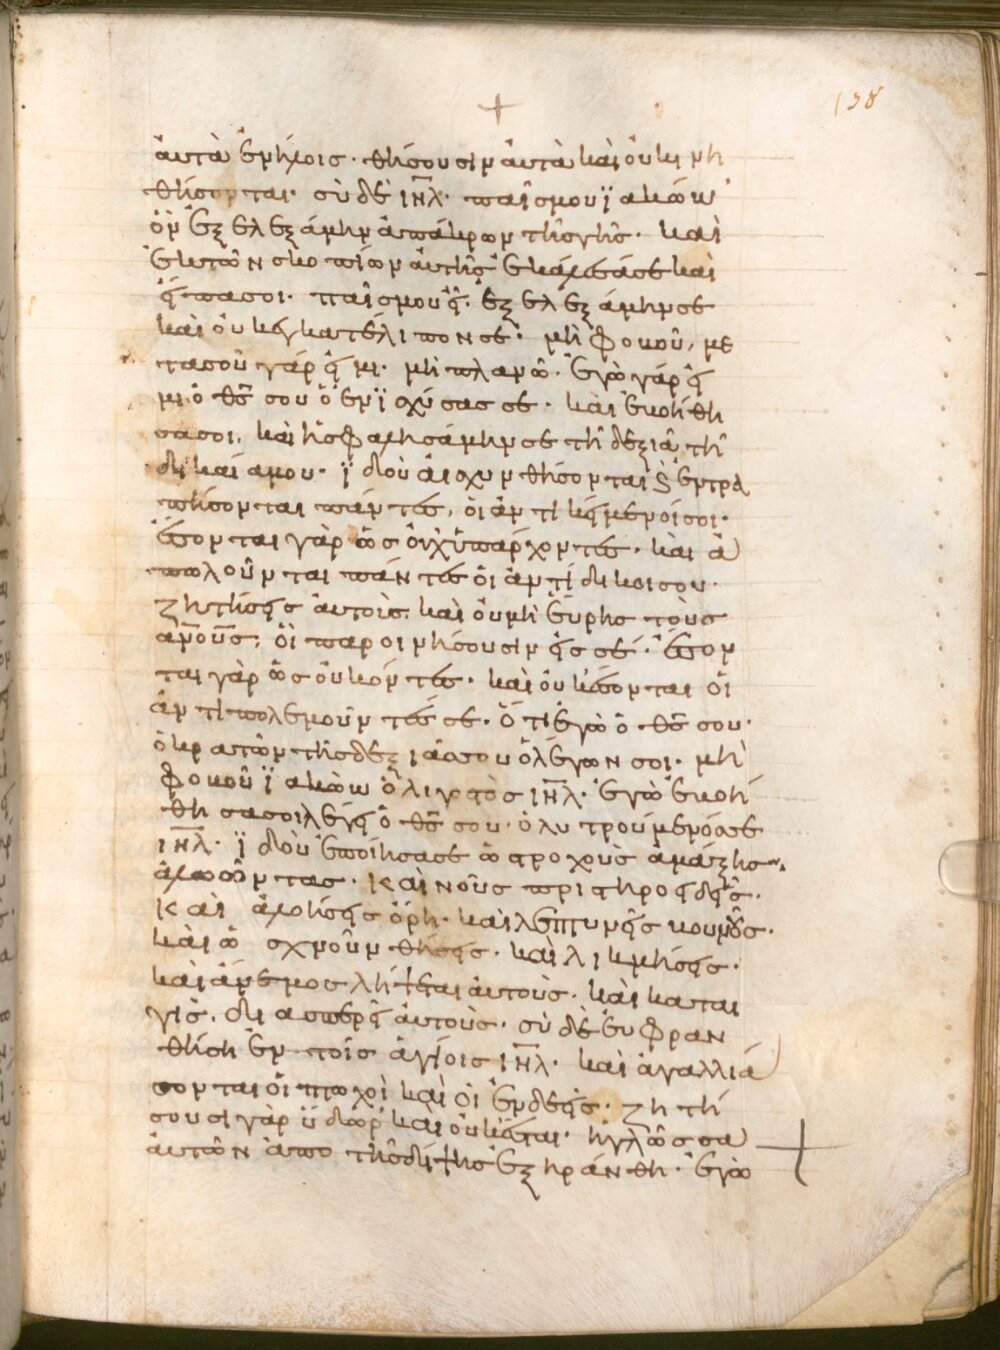 138
ἀυτὰ ἐν ἥλοις· θήσουσιν ἀυτὰ καὶ ὀυ κι νη
θήσονται· σὺ δὲ ιη̅λ· παῖς μου ϊακὼβ
ὃν ἐξελεξάμην ἀπάκρων τῆς γῆς· καὶ
ἐκ τῶν σκοπίων ἀυτῆς ἐκάλεσά σε καὶ
εἶπα σοι· παῖς μου εἶ· ἐξελεξάμην σε
καὶ ὀυκ εγκατέλιπον σε· μὴ φοβοῦ, με
τα σοῦ γάρ εἰμι· μὴ πλανῶ· ἐγὼ γάρ εἰ
μι ὁ θς̅ σου ὁ ἐνϊσχύσας σε· καὶ ἐβοήθη
σα σοι, καὶ ἠσφαλησάμην σε τῆ δεξιᾶ τῆ
δικαία μου· ϊδοὺ ἀισχυνθήσονται ϗ ἐντρα
πήσονται πάντες, ὁι ἀντικείμενοί σοι·
ἔσονται γὰρ ὡς ὀυχ ὑπάρχοντες· καὶ ἀ
πωλοῦνται πάντες ὁι ἀντίδικοι σου·
ζητήσεις ἀυτοὺς, καὶ ὀυ μὴ ἔυρης τοὺς
αν̅ους̅, ὁὶ παροινήσουσιν εἰς σέ· ἔσον
ται γὰρ ὡς ὀυκ όντες· καὶ ὀυκ ἔσονται ὁι
ἀντιπολεμοῦντές σε· ὅτι ἐγὼ ὁ θς̅ σου·
ὁ κρατῶν τῆς δεξιάς σου ὁ λέγων σοι· μὴ
φοβοῦ ϊακὼβ ὀλιγοστὸς ιη̅λ· ἐγὼ ἐβοή
θησα σοι λέγει ὁ θς̅ σου· ὁ λυτρούμενός σε
ιη̅λ· ϊδοὺ ἐποίησα σε ὡς τροχοὺς ἁμάξης
ἀλοῶντας· καινοὺς πριστηροειδεῖς·
Καὶ ἀλοήσεις ὄρη· καὶ λεπτυνεῖς βουνοὺς·
καὶ ὡς χνοῦν θήσεις· καὶ λικμήσεις·
καὶ ἄνεμος λήψεται ἀυτοὺς· καὶ καται
γὶς, διασπερεῖ ἀυτοὺς· σὺ δὲ ἐυφραν
θήση ἐν τοῖς ἁγίοις ιη̅λ· καὶ ἀγαλλιά
σονται ὁι πτωχοὶ καὶ ὁι ἐνδεεῖς· ζητή
σουσι γὰρ ὕδωρ καὶ ὀυκ ἔσται· ἡ γλῶσσα
ἀυτῶν ἀπο τῆς δίψης ἐξηράνθη· ἐγὼ